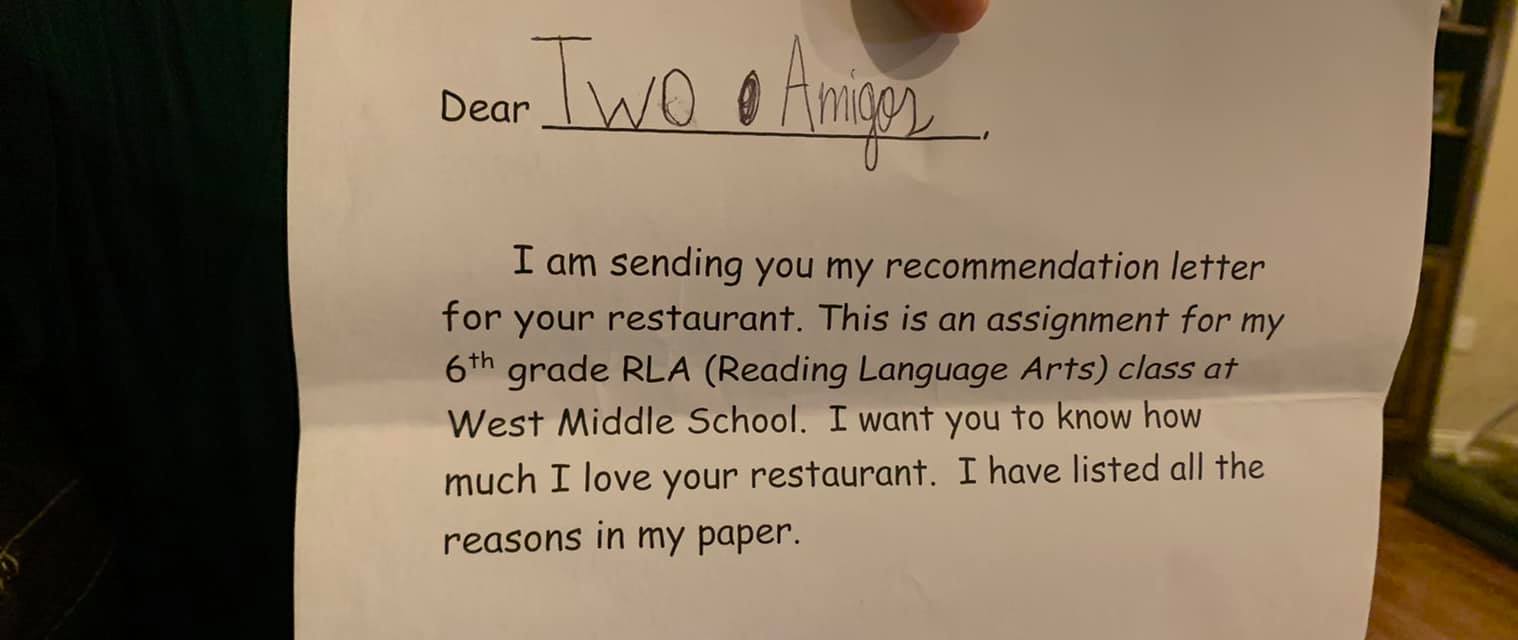 Dear Two Amigos,
I am sending you my recommendation letter
for your restaurant. This is an assignment for my
6th grade RLA (Reading Language Arts) class at
West Middle School. I want you to know how
much I love your restaurant. I have listed all the
reasons in my paper.